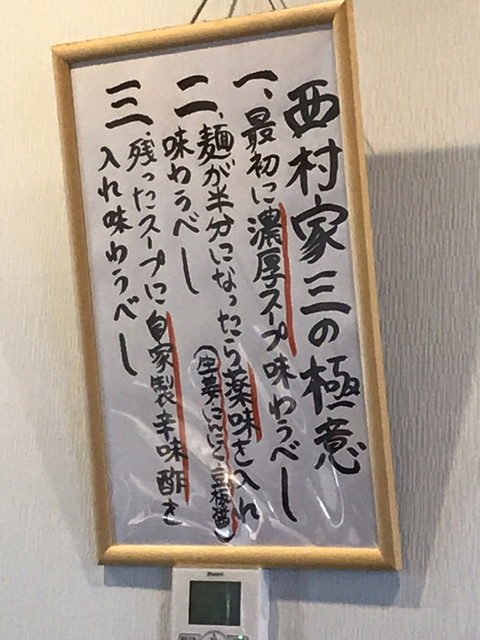 西村家三の極意
一、最初に濃厚スープ味わうべし
二、麺が半分になったら薬味を入れ
(生姜にんにく豆板醤)
味わうべし
三、残ったスープに自家製辛味酢を
入れ味わうべし